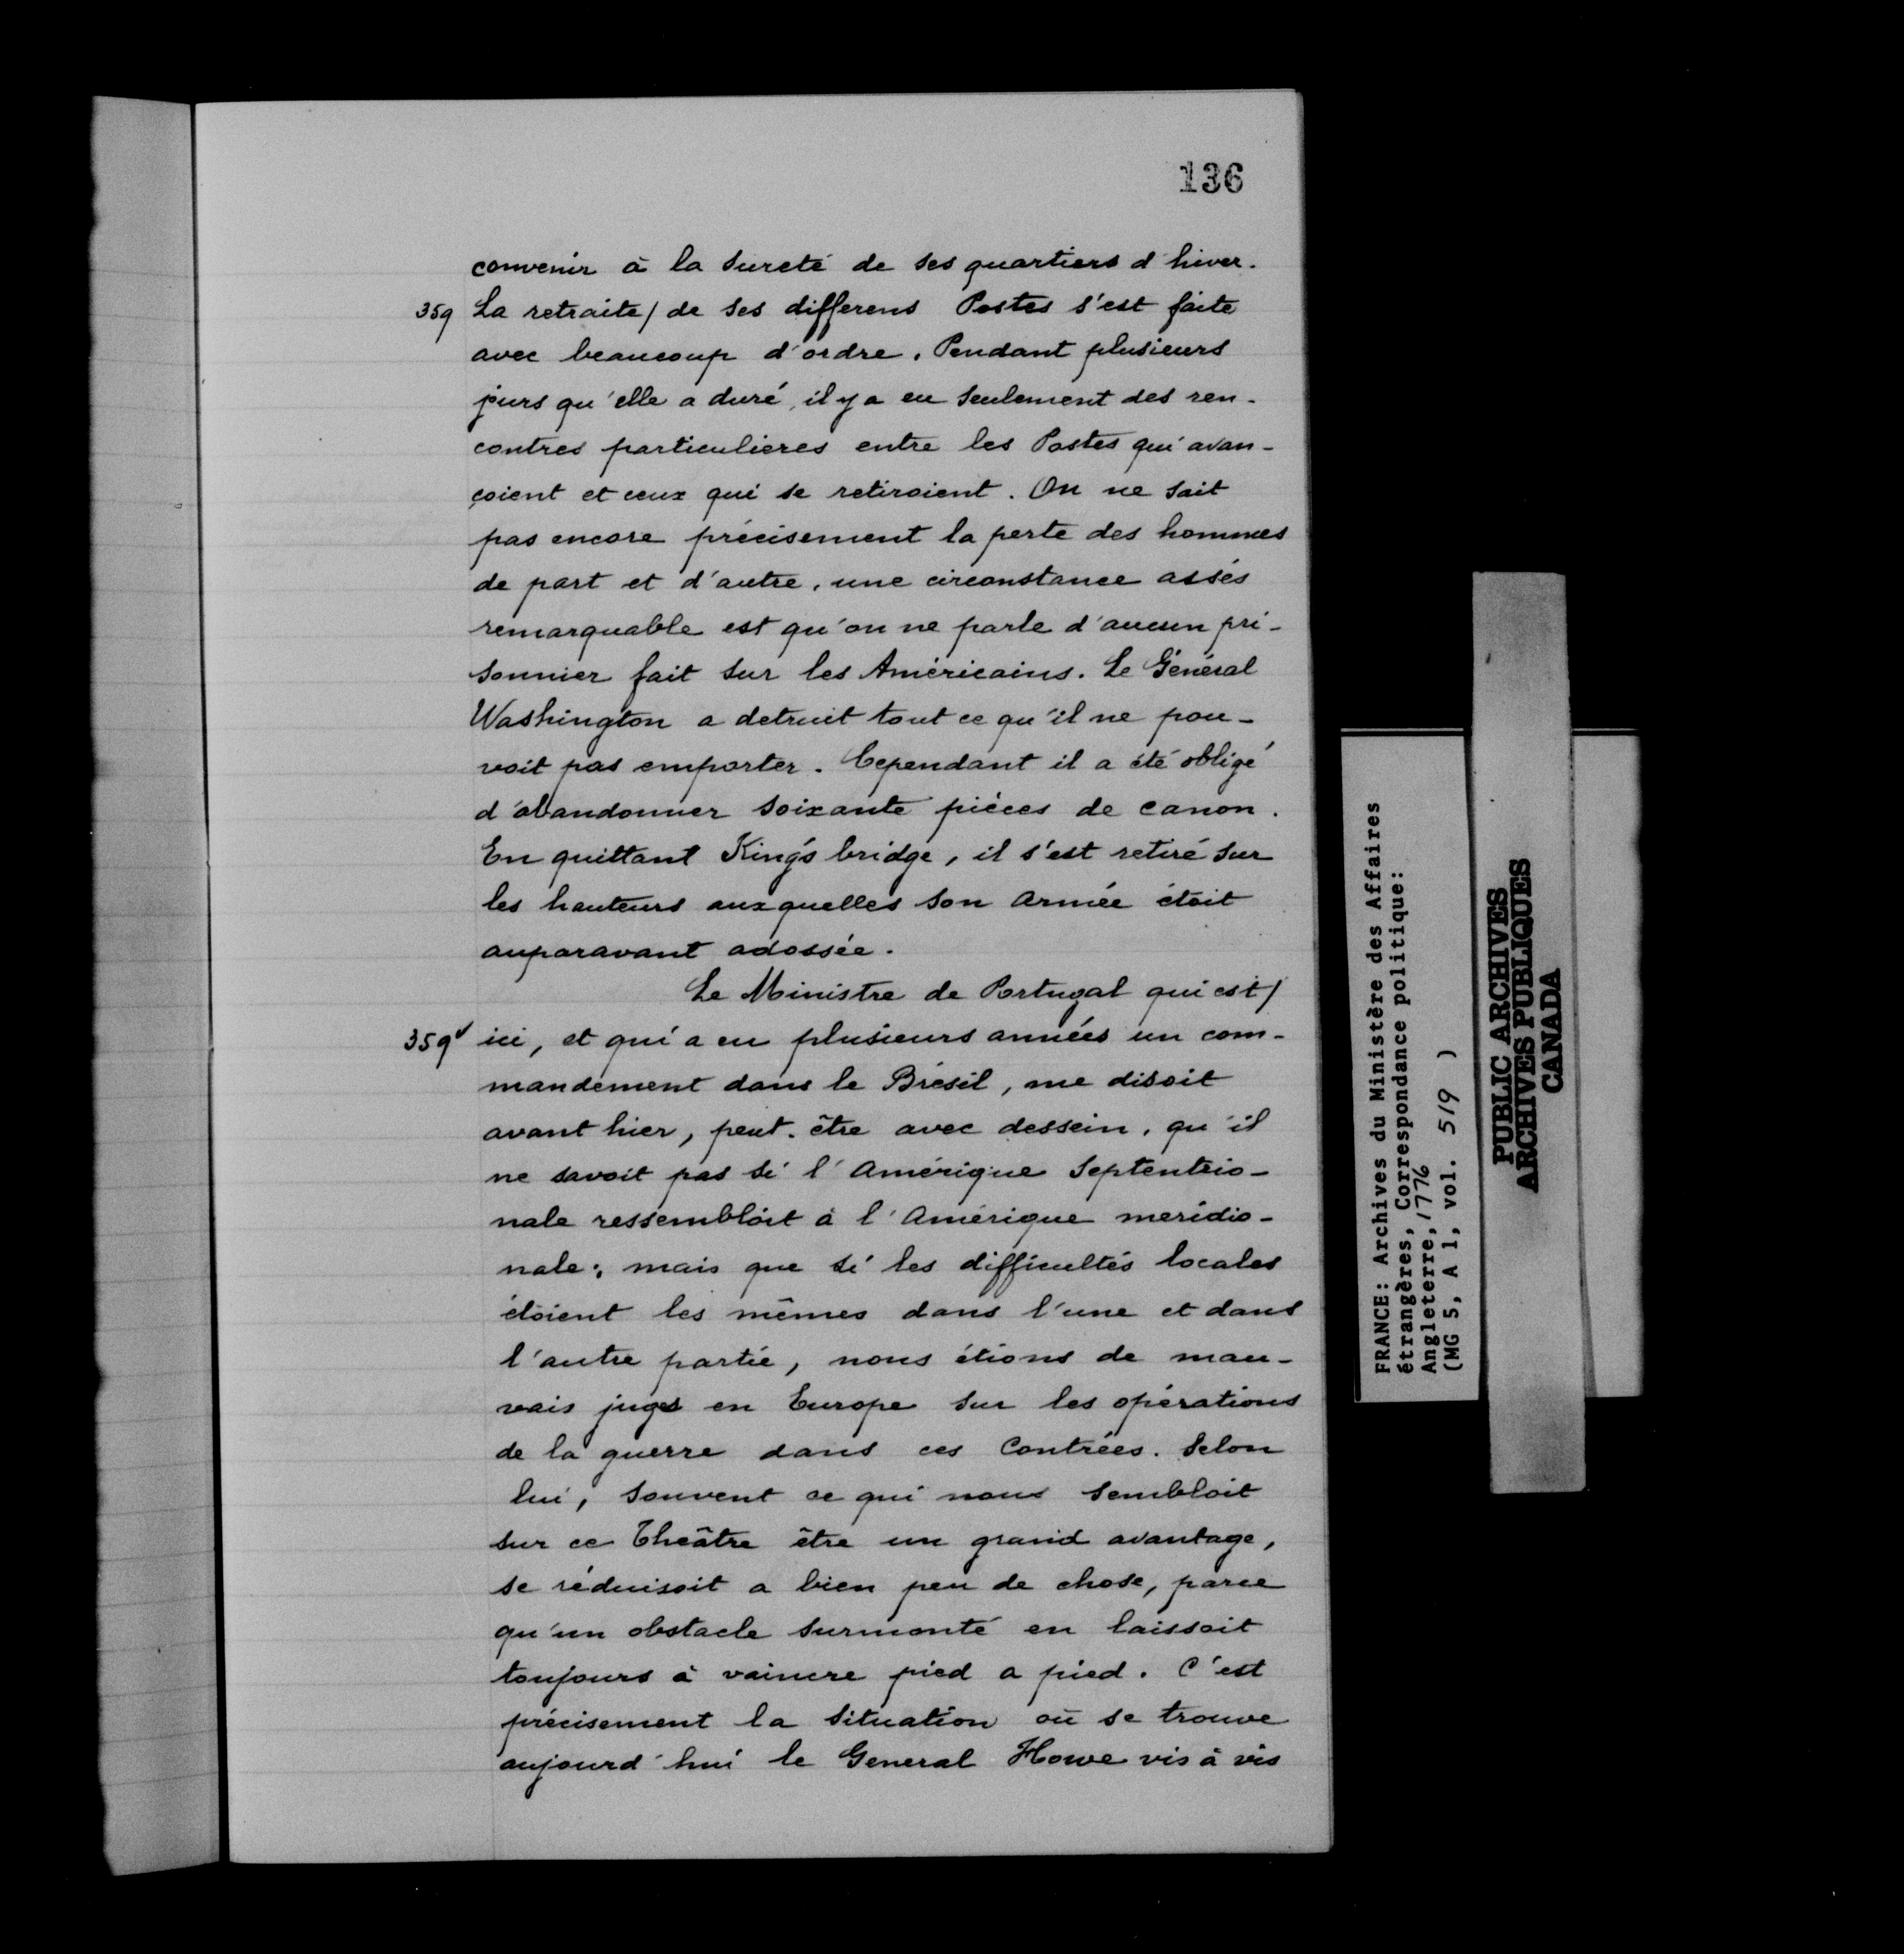 136
convenir à la sureté de ses quartiers d'hiver.
359 La retraite / de ses differens Postes s'est faite
avec beaucoup d'ordre. Pendant plusieurs
jours qu'elle a duré, il y a eu seulement des ren-
contres particulieres entre les Postes qui avan-
çoient et ceux qui se retiroient. On ne sait
pas encore précisement la perte des hommes
de part et d'autre, une circonstance assés
remarquable est qu'on ne parle d'aucun pri-
sonnier fait sur les Américains. Le Général
Washington a detruit tout ce qu'il ne pou-
voit pas emporter. Cependant il a été obligé
d'abandonner soixante pièces de canon.
En quittant King's bridge, il s'est retiré sur
les hauteurs auxquelles son armée étoit
auparavant adossée.
Le Ministre de Portugal qui est /
359v ici, et qui a eu plusieurs années un com-
mandement dans le Brésil, me disoit
avant hier, peut-être avec dessein, qu'il
ne savoit pas si l'Amérique Septentrio-
nale ressembloit à l'Amérique meridio-
nale; mais que si les difficultés locales
étoient les mêmes dans l'une et dans
l'autre partie, nous étions de mau-
vais juges en Europe sur les opérations
de la guerre dans ces Contrées. Selon
lui, souvent ce qui nous sembloit
sur ce Théâtre être un grand avantage,
se réduisoit a bien peu de chose, parce
qu'un obstacle surmonté en laissoit
toujours à vaincre pied a pied. C'est
précisement la situation où se trouve
aujourd'hui le General Howe vis à vis
FRANCE: Archives du Ministère des Affaires
étrangères, Correspondance politique:
Angleterre, 1776
(MG 5, A 1, vol. 519 )
PUBLIC ARCHIVES
ARCHIVES PUBLIQUES
CANADA